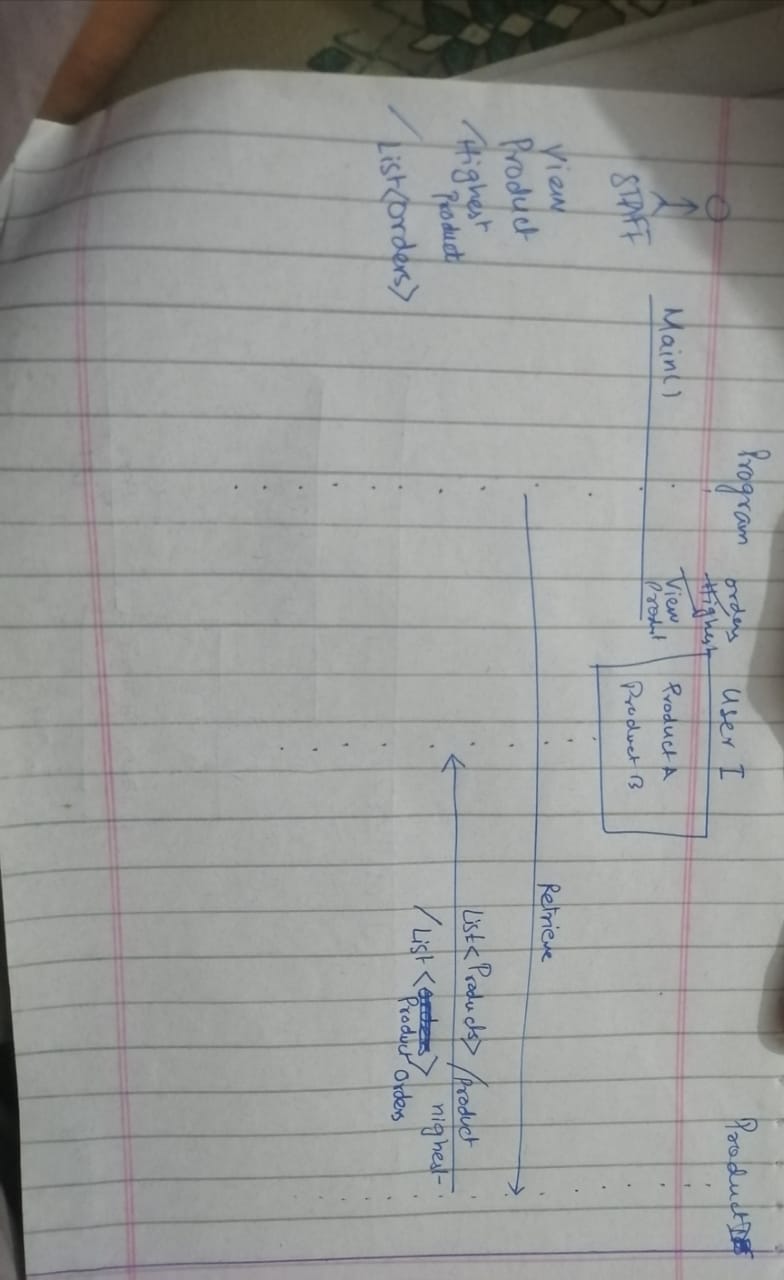 STAFF
View
Product
/Highest
Product
/
List<orders>
Main()
Program
orders
Highest
View
Product
User I
Product A
Product B
Retrieve
List<Products> /Product
highest
/List<orders>
Product Orders
Product